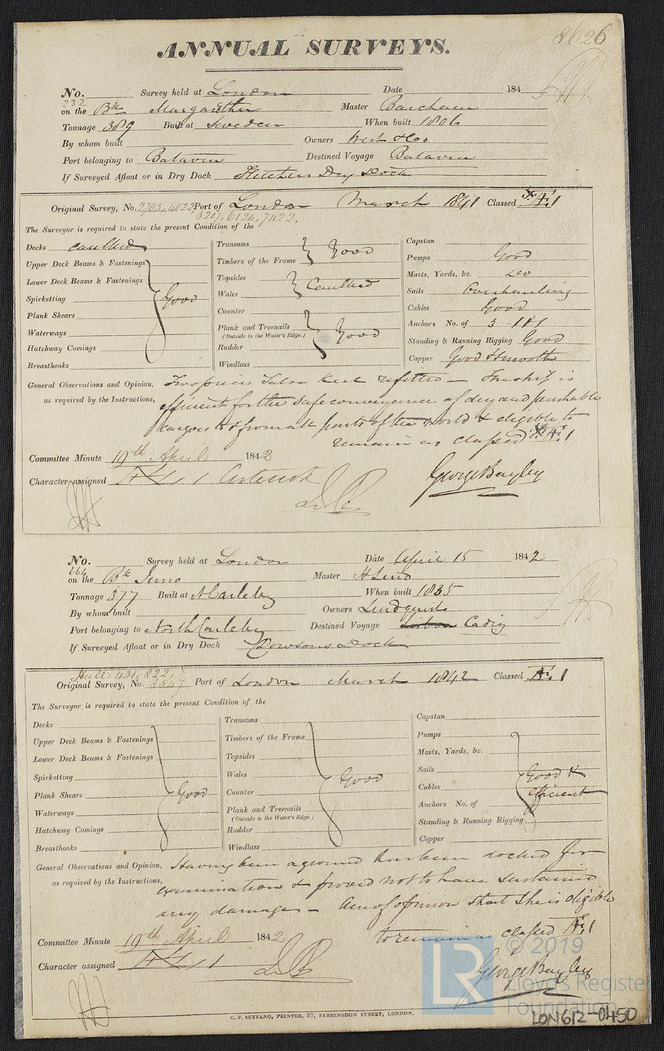 8626
ANNUAL SURVEYS.
No. 232 Survey held at London Date 184
on the Bk Margaretha Master Barcham
Tonnage 389 Built at Sweden When built 1806
By whom built Owners West & Co.
Port belonging to Batavia Destined Voyage Batavia
If Surveyed Afloat or in Dry Dock Fletchers Dry Dock
Original Survey, No. 2705, 4022 Port of London March 1841 Classed Æ 1
5207, 6124, 7422.
The Surveyor is required to state the present Condition of the
Decks caulked
Upper Deck Beams & Fastenings
Lower Deck Beams & Fastenings
Spirketting Good
Plank Shears
Waterways
Hatchway Comings
Breasthooks
Transoms
Timbers of the Frame Good
Topsides
Wales Caulked
Counter
Plank and Treenails
(Outside to the Water's Edge.) Good
Rudder
Windlass
Capstan
Pumps Good
Masts, Yards, &c. Do
Sails Overhauling
Cables Good
Anchors No. of 3 - 1 & 1
Standing & Running Rigging Good
Copper Good
General Observations and Opinion, Two pieces False Keel refitted – The ship is
as required by the Instructions, efficient for the safe conveyance of dry and perishable
Cargoes to & from all parts of the world & eligible to
remain as classed Æ 1
Committee Minute 19th April 1842
Character assigned Asterisk
George Bayley
No. 264 Survey held at London Date April 15 1842
on the Bk Juno Master H Lind
Tonnage 377 Built at N Carleby When built 1835
By whom built Owners Lindqvist
Port belonging to North Carleby Destined Voyage Lisbon Cadiz
If Surveyed Afloat or in Dry Dock Dowsons Dock
Hull 431, 822,
Original Survey, No. Port of London March 1842 Classed Æ 1
The Surveyor is required to state the present Condition of the
Decks
Upper Deck Beams & Fastenings
Lower Deck Beams & Fastenings
Spirketting
Plank Shears Good
Waterways
Hatchway Comings
Breasthooks
Transoms
Timbers of the Frame
Topsides
Wales Good
Counter
Plank and Treenails
(Outside to the Water's Edge.)
Rudder
Windlass
Capstan
Pumps
Masts, Yards, &c.
Sails Good &
Cables efficient
Anchors No. of
Standing & Running Rigging
Copper
General Observations and Opinion, Having been aground has been docked for
as required by the Instructions, examination & proved not to have sustained
any damages – Am of opinion that she is eligible
to remain as classed Æ 1
Committee Minute 19th April 1842
Character assigned
George Bayley
C. F. SEYFANG, PRINTER, 57, FARRINGDON STREET, LONDON.
© 2019
LR Lloyd's Register
Foundation
LON612-0450